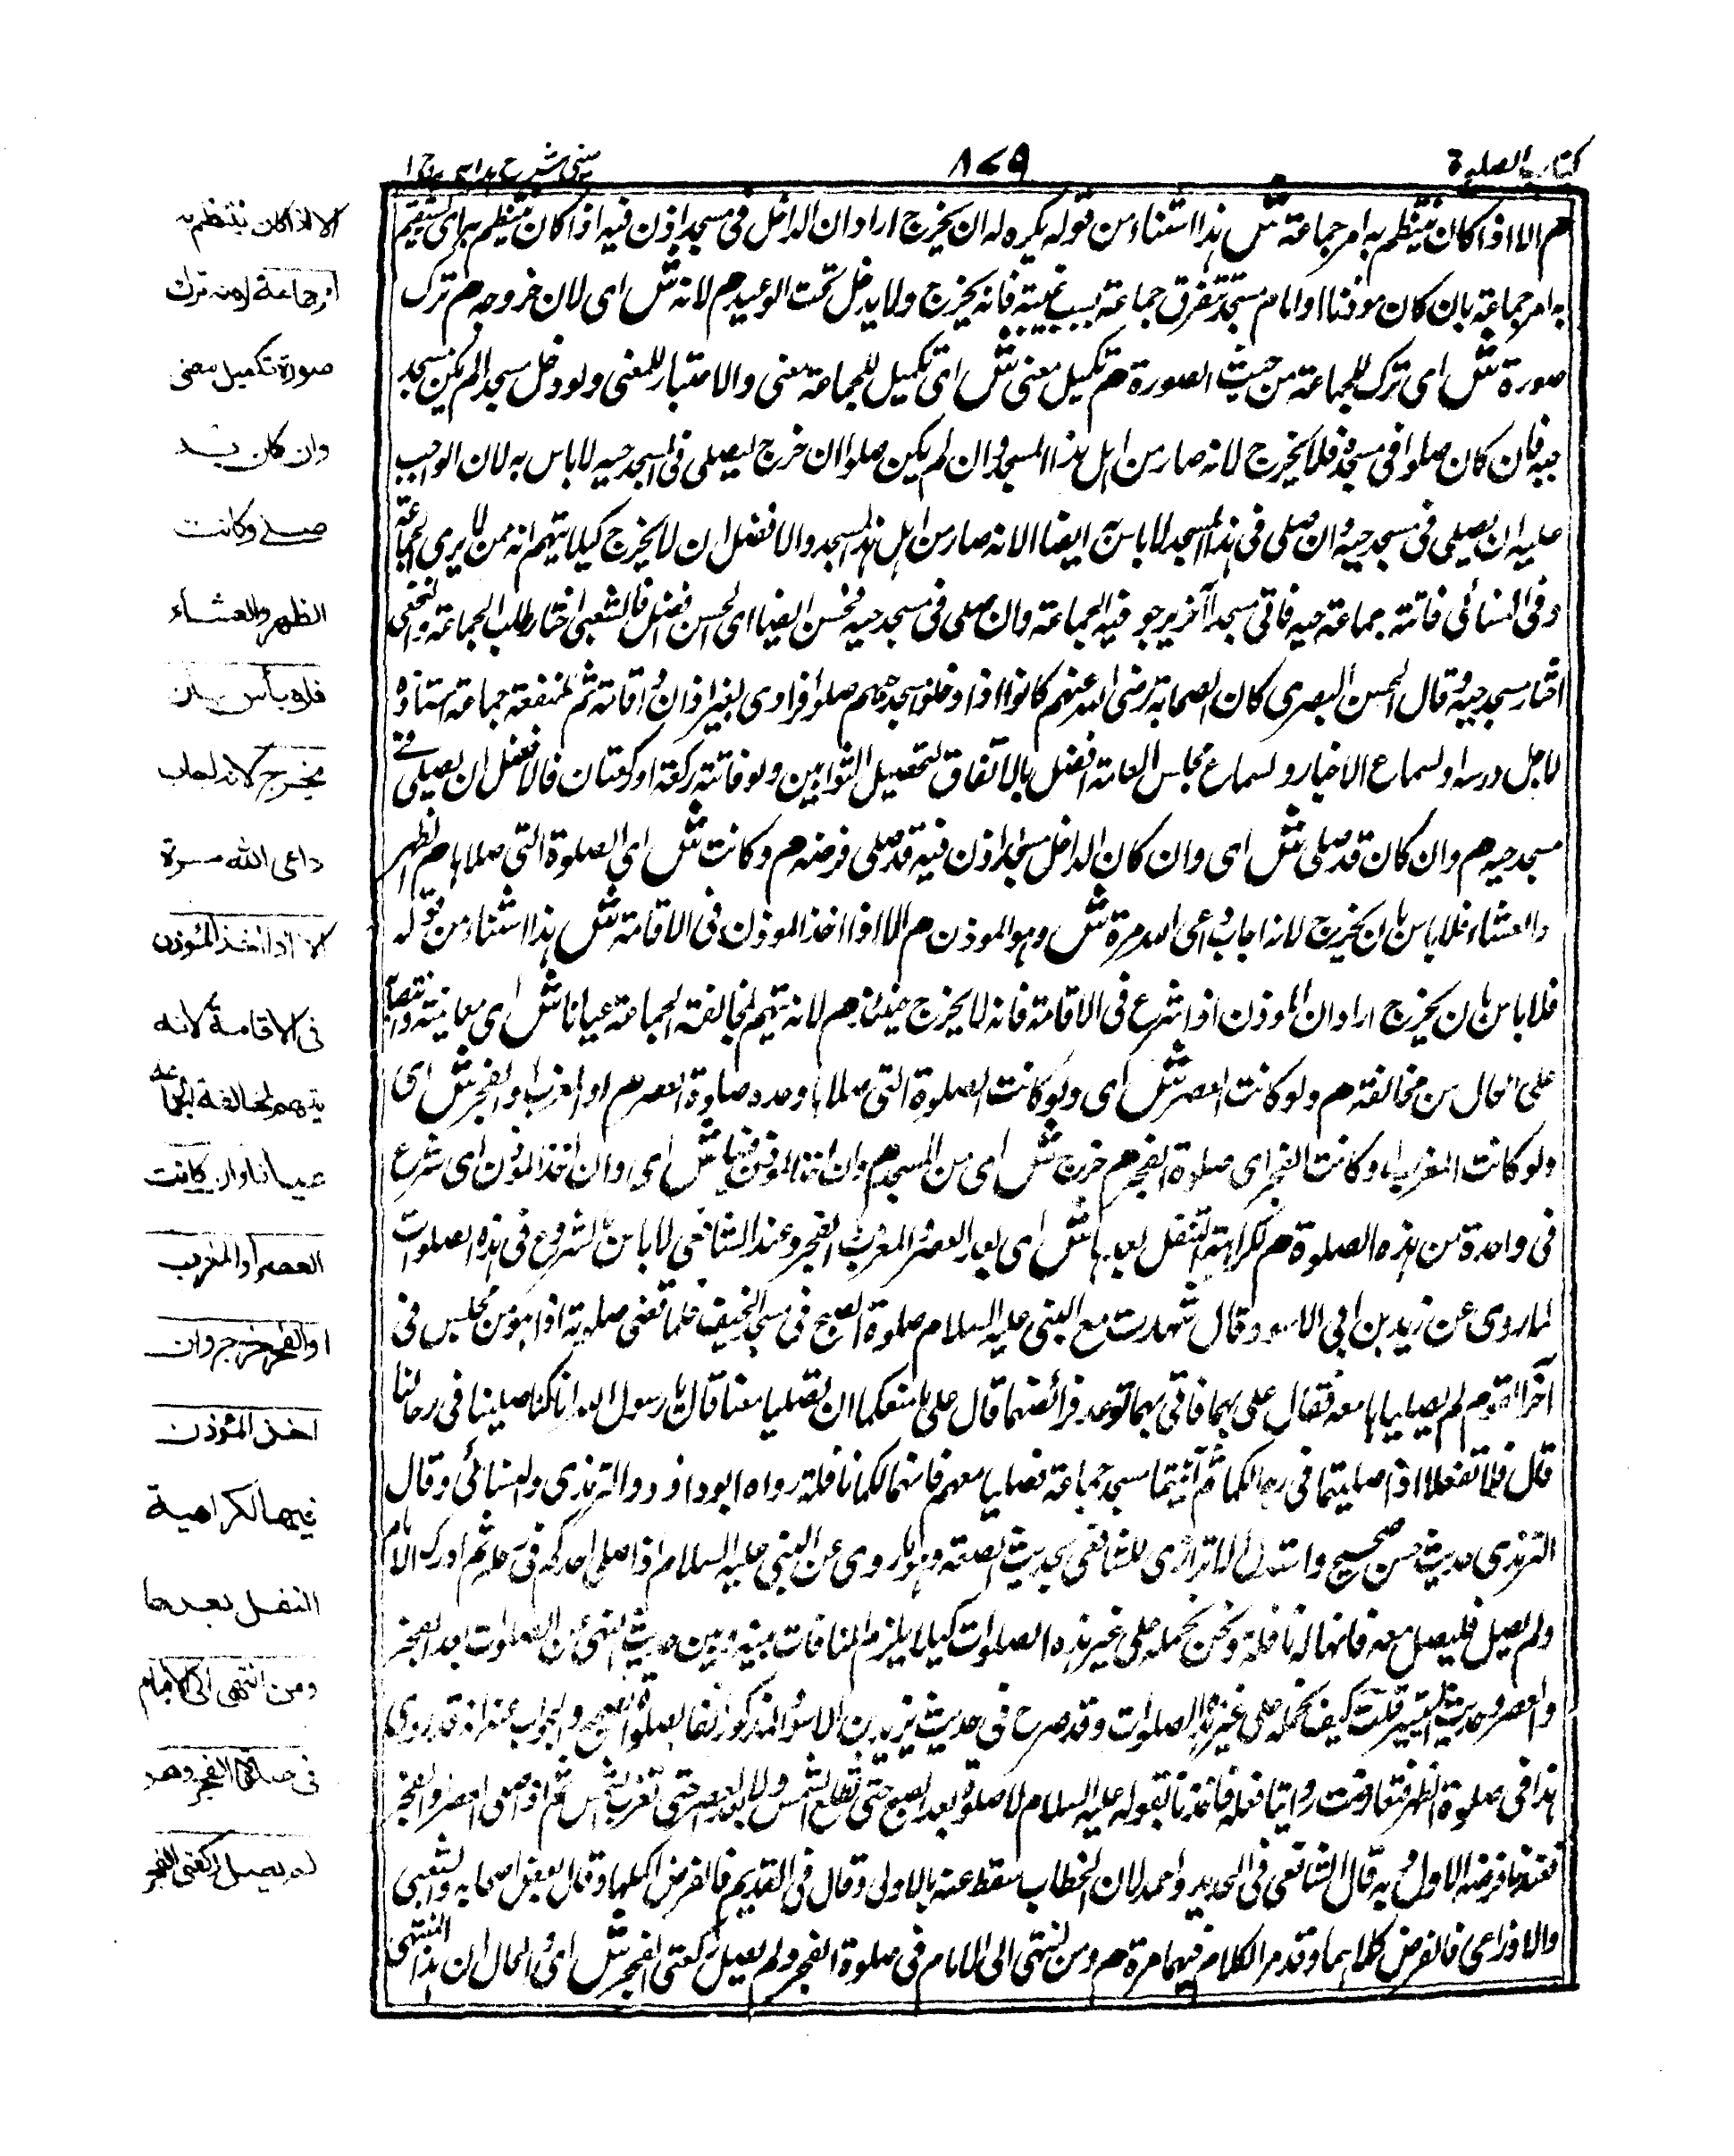 كتاب الصلوة
٨٧٩
عينى شرح هدايه ج ١
م الا اذا كان ينتظم به امر جماعة ش هذا استثناء من قوله يكره له ان يخرج اراد ان الداخل فى مسجد اذن فيه اذا كان ينتظم به اى يستقيم
به امر جماعة بان كان موذنا او امام مسجد تتفرق جماعة بسبب غيبته فانه يخرج ولا يدخل تحت الوعيد م لانه ش اى لان خروجه م ترك
صورة ش اى ترك للجماعة من حيث الصورة م تكميل معنى ش اى تكميل للجماعة معنى والاعتبار للمعنى ولو دخل مسجدا لم يكن مسجد
حيه فان كان صلوا فى مسجده فلا يخرج لانه صار من اهل هذا المسجد وان لم يكن صلوا ان خرج ليصلى فى المسجد حيه لا باس به لان الواجب
عليه ان يصلى فى مسجد حيه وان صلى فى هذا المسجد لا باس به ايضا لانه صار من اهل هذا المسجد والافضل ان لا يخرج كيلا يتهم انه ممن لا يرى الجماعة
وفى النسائى فاتته جماعة حيه فاتى مسجدا آخر يرجو فيه الجماعة وان صلى فى مسجد حيه فحسن ايضا اى الحسن افضل قال الشعبى اختار طلب الجماعة والنخعى
اختار مسجد حيه وقال الحسن البصرى كان الصحابة رضى الله عنهم كانوا اذا دخلوا مسجدهم صلوا فرادى بغير اذان واقامة ثم جماعة استاذه
لاجل درسه او لسماع الاخبار و لسماع مجلس العامة افضل بالاتفاق لتحصيل الثوابين ولو فاتته ركعة او ركعتان فالافضل ان يصلى فى
مسجد حيه م وان كان قد صلى ش اى وان كان الداخل مسجدا اذن فيه قد صلى فرضه م وكانت ش اى الصلوة التى صلاها م الظهر
والعشاء فلا باس بان يخرج لانه اجاب داعى الله مرة ش وهو الموذن م الا اذا اخذ الموذن فى الاقامة ش هذا استثناء من قوله
فلا باس بان يخرج اراد ان الموذن اذا شرع فى الاقامة فانه لا يخرج حينئذ م لانه يتهم لمخالفة الجماعة عيانا ش اى معاينة وانتصابه
على الحال من مخالفته م ولو كانت العصر ش اى ولو كانت الصلوة التى صلاها وحده صلوة العصر م او المغرب او الفجر ش اى
ولو كانت المغرب او كانت الفجر اى صلوة الفجر م خرج ش اى من المسجد م وان اخذ الموذن فيها ش اى وان اخذ الموذن اى شرع
فى واحدة من هذه الصلوة م لكراهية التنفل بعدها ش اى بعد العصر والمغرب والفجر وعند الشافعى لا باس بالشروع فى هذه الصلوات
لما روى عن زيد بن ابى الاسود قال شهدت مع النبى عليه السلام صلوة الصبح فى مسجد الخيف فلما قضى صلوته اذا هو من مجلس فى
آخر القوم لم يصليا معه فقال على بهما فاتى بهما ترعد فرائصهما قال على ما منعكما ان تصليا معنا قال يا رسول الله انا كنا صلينا فى رحالنا
قال فلا تفعلا اذا صليتما فى رحالكما ثم آتيتما مسجد جماعة فصليا معهم فانهما لكما نافلة رواه ابو داود والترمذى والنسائى وقال
الترمذى حديث حسن صحيح واستدل الاترازى للشافعى بحديث وهو ما روى عن النبى عليه السلام اذا صلى احدكم فى رحله ثم ادرك الامام
ولم يصل فليصل معه فانها له نافلة ونحن نحمله على غير هذه الصلوات كيلا يلزم المنافات بينه وبين حديث النهى عن الصلوات بعد الفجر
والعصر وحديث قلت كيف نحمله على غير هذه الصلوات وقد صرح فى حديث يزيد بن الاسود المذكور آنفا بصلوة الصبح والجواب عنه انه قد روى
هذا فى صلوة الظهر فتعارضت روايتا فعله فاخذنا بقوله عليه السلام لا صلوة بعد الصبح حتى تطلع الشمس ولا بعد العصر حتى تغرب الشمس ثم اذا صلى العصر والفجر
فعندنا فرضه الاول وبه قال الشافعى فى الجديد واحمد لان الخطاب سقط عنه بالاولى وقال فى القديم فالفرض اكملها وقال بعض اصحابه والشعبى
والاوزاعى فالفرض كلاهما وقد مر الكلام فيها مرة م ومن انتهى الى الامام فى صلوة الفجر ولم يصل ركعتى الفجر ش اى والحال ان هذا المنتهى
الا اذا كان ينتظم به
امر جماعة لانه ترك
صورة تكميل معنى
وان كان قد
صلى وكانت
الظهر والعشاء
فلا بأس بان
يخرج لانه اجاب
داعى الله مرة
الا اذا اخذ المؤذن
فى الاقامة لانه
يتهم لمخالفة الجماعة
عيانا وان كانت
العصر او المغرب
او الفجر خرج وان
اخذ المؤذن
فيها لكراهية
النفل بعدها
ومن انتهى الى الامام
فى صلاة الفجر وهو
لم يصل ركعتى الفجر